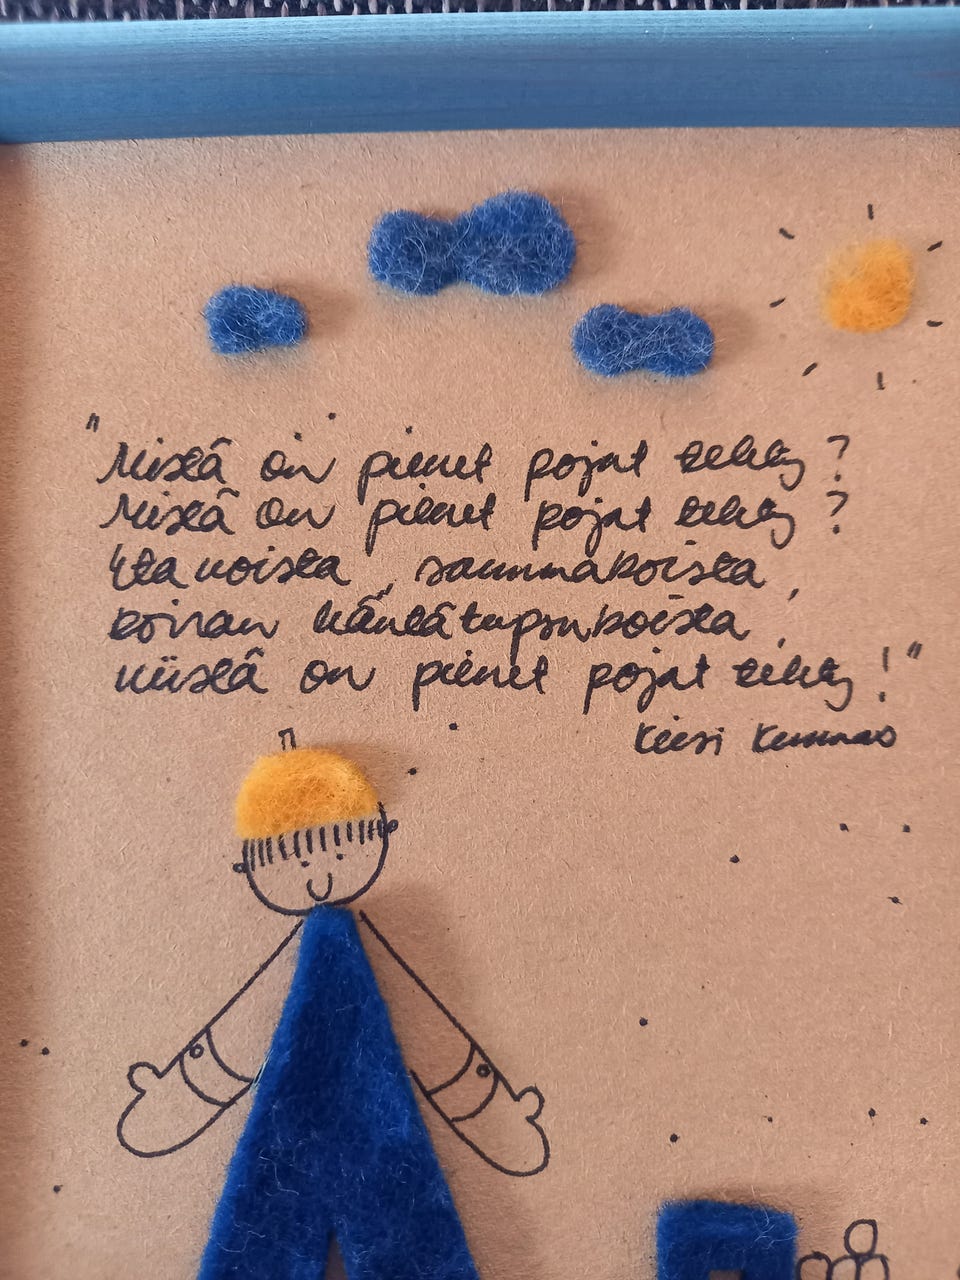 "Mistä on pienet pojat tehty?
Mistä on pienet pojat tehty?
Etanoista, sammakoista,
koiran häntätupsukoista,
niistä on pienet pojat tehty!"
Kirsi Kunnas